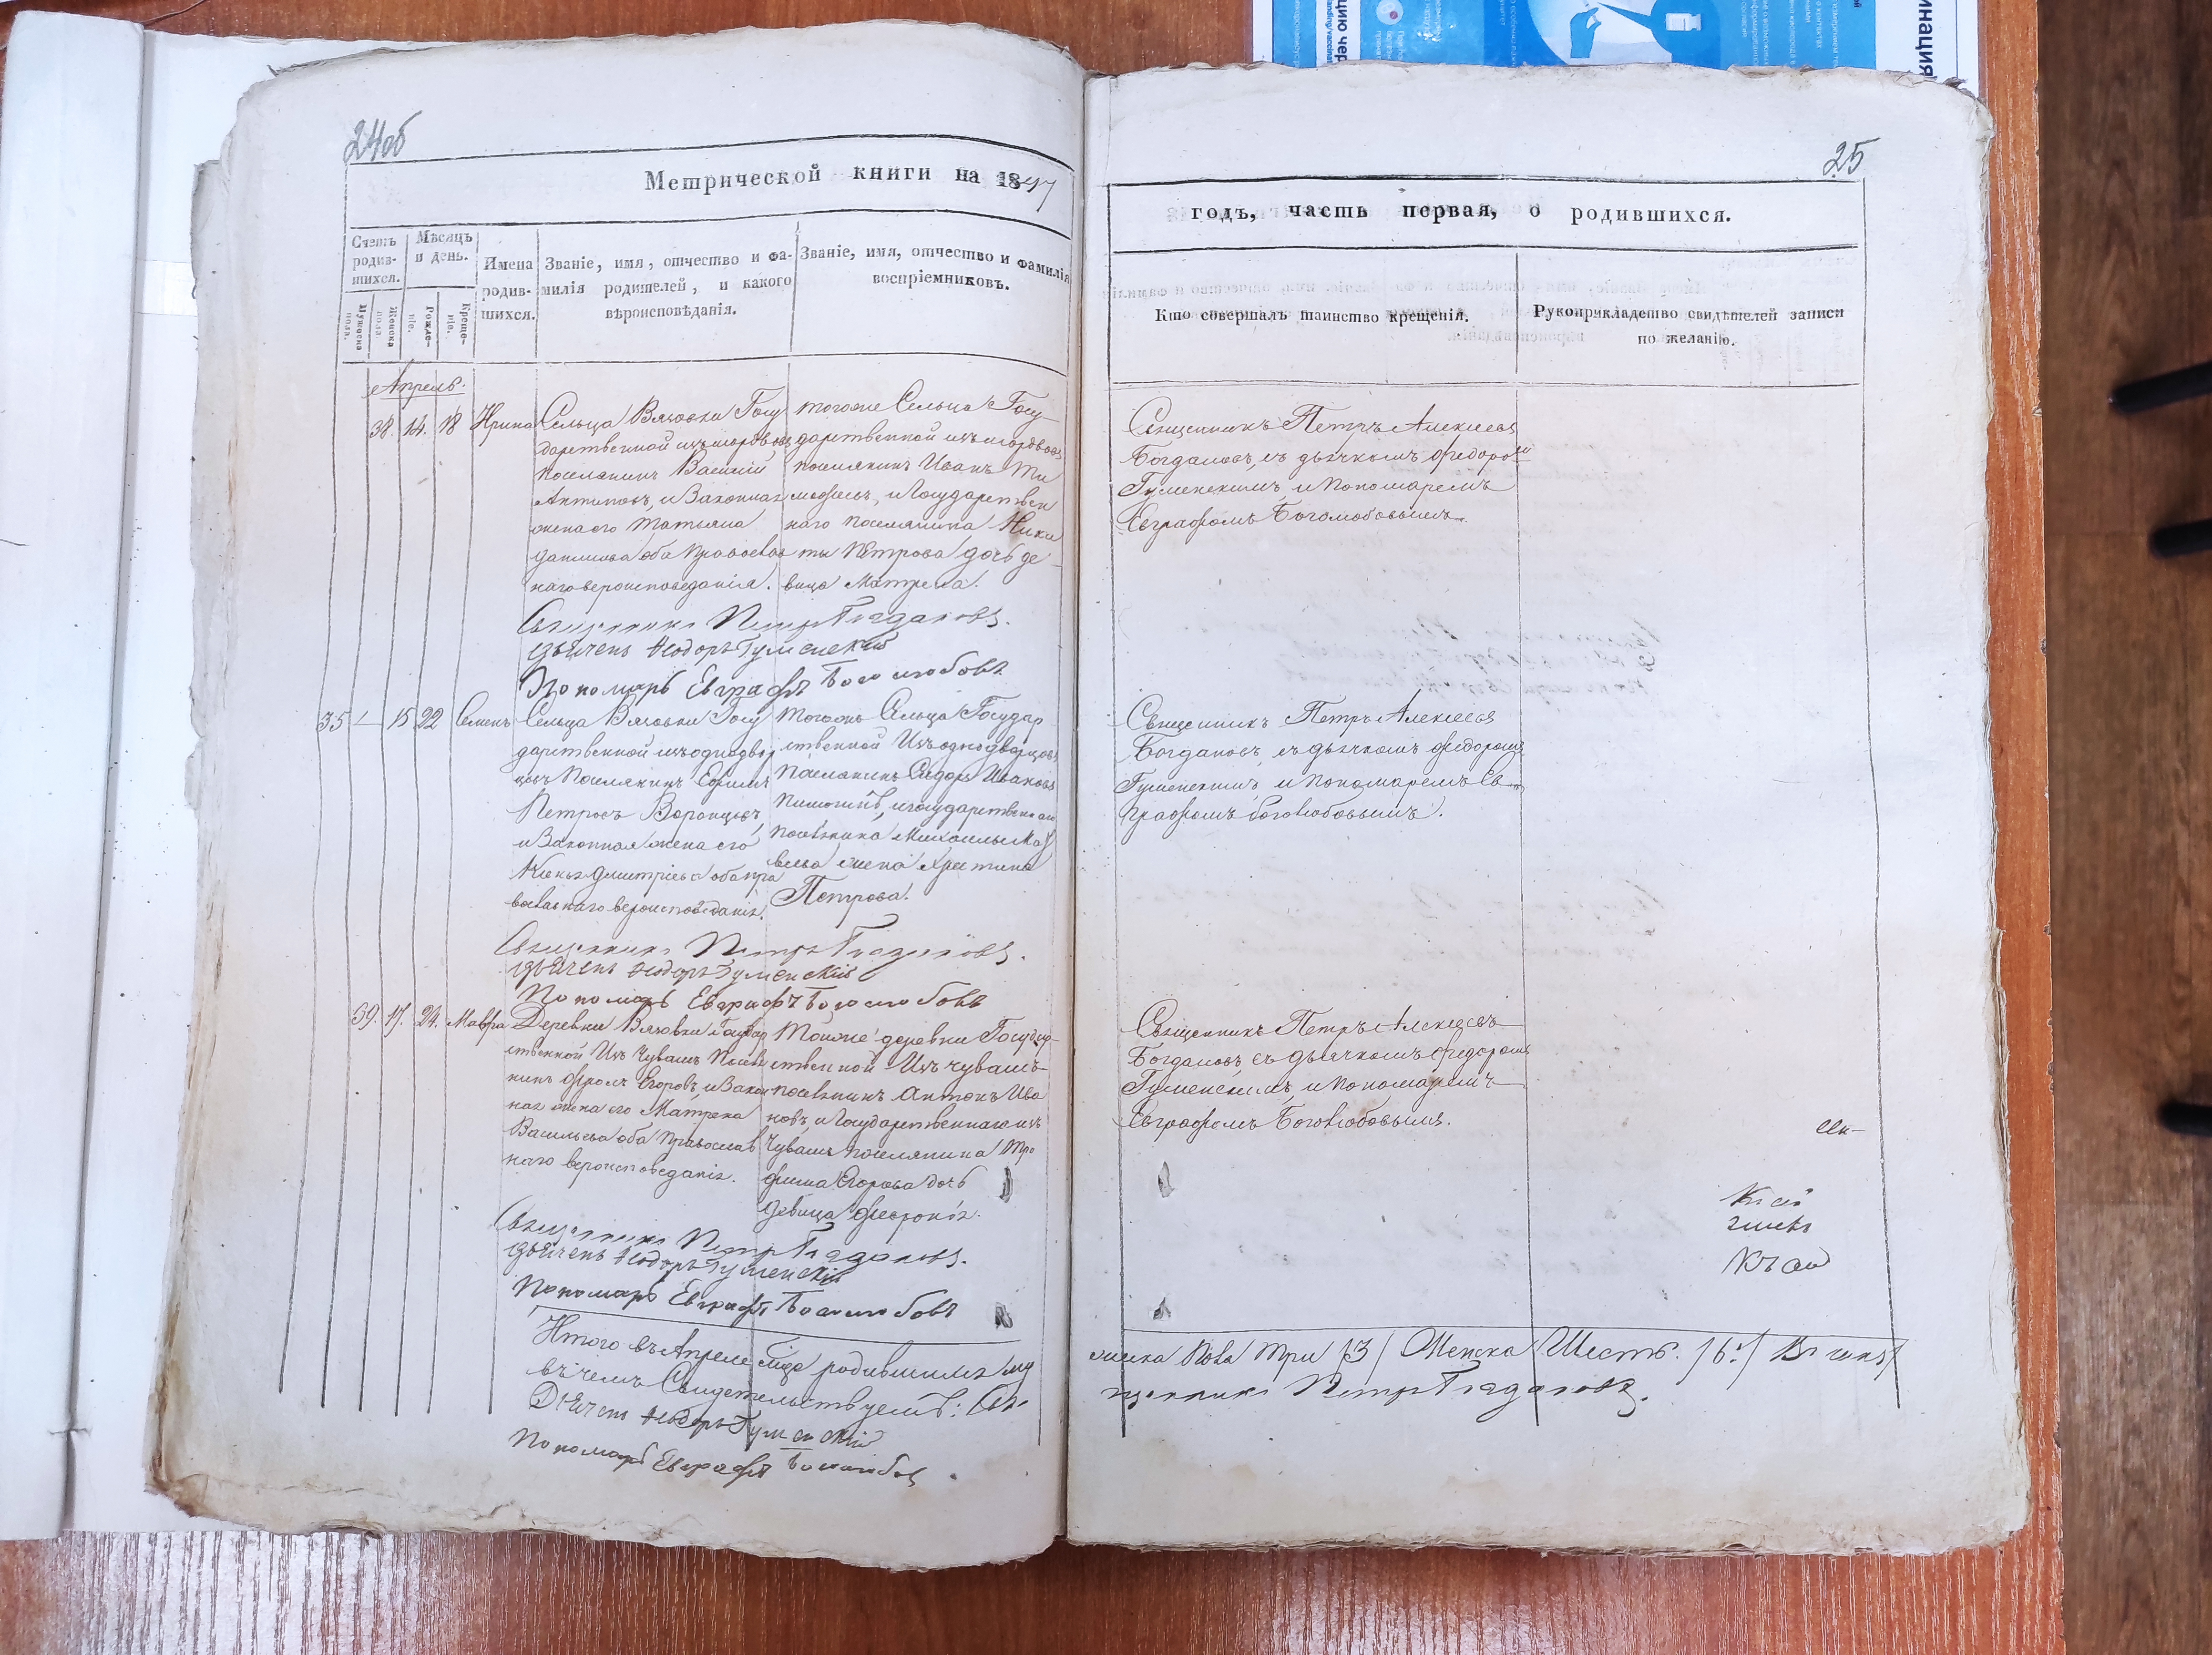 24об
Метрической книги на 1847
Счетъ родив-шихся.
Мужеска пола.
Женска пола.
Мѣсяцъ и день.
Рожде-ніе.
Креще-ніе.
Имена родив-шихся.
Званіе, имя, отчество и фа-
милія родителей, и какого
вѣроисповѣданія.
Званіе, имя, отчество и фамилія
воспріемниковъ.
Апрель.
38. 14. 18 Ирина
Сельца Вязовки Госу
дарственной изъ мордвовъ
поселянинъ Василій
Антиповъ, и Законная
жена его Татьяна
Данилова оба Православ
наго вероисповеданія.
тогоже Сельца Госу
дарственной изъ мордвовъ
поселянинъ Иванъ Ти
мофеевъ, и Государствен
наго поселянина Ники
ты Петрова дочь де
вица Матрена.
Священникъ Петръ Богдановъ.
Дьячекъ Ѳеодоръ Гуменскій
Пономарь Евграфъ Боголюбовъ
35 — 15 22 Семенъ
Сельца Вязовки Госу
дарственной изъ однодвор
цевъ Поселянинъ Ефимъ
Петровъ Воронцовъ,
и Законная жена его
Дмитріева оба пра
вославнаго вероисповеданія.
Тогожъ Сельца Государ
ственной Изъ однодворцовъ
Поселянинъ Сидоръ Ивановъ
и государственнаго
поселянина Михаилы
жена Христина
Петрова.
Священникъ Петръ Богдановъ.
Дьячекъ Ѳеодоръ Гуменскій
Пономарь Евграфъ Боголюбовъ
39. 17. 24. Мавра
Деревни Вязовки Государ
ственной Изъ Чувашъ Поселя
нинъ Фролъ Егоровъ, и Закон
ная жена его Матрена
Васильева оба Православ
наго вероисповеданія.
Тоиже деревни Государ-
ственной Изъ чувашъ
поселянинъ Антонъ Ива
новъ, и Государственнаго изъ
Чувашъ поселянина Тро
фима Егорова дочь
девица Феврония.
Священникъ Петръ Богдановъ.
Дьячекъ Ѳеодоръ Гуменскій
Пономарь Евграфъ Боголюбовъ
Итого въ Апреле мце родившихся му
въ чемъ Свидетельствуемъ: Свя
Дьячекъ Ѳеодоръ Гуменскій
Пономарь Евграфъ Боголюбовъ
25
годъ, часть первая, о родившихся.
Кто совершалъ таинство крещенія.
Рукоприкладство свидѣтелей записи
по желанію.
Священникъ Петръ Алексеевъ
Богдановъ, съ дьячкомъ Федоромъ
Гуменскимъ, и Пономаремъ
Евграфомъ Боголюбовымъ.
Священникъ Петръ Алексеевъ
Богдановъ, съ дьячкомъ Федоромъ
Гуменскимъ, и Пономаремъ Ев-
графомъ Боголюбовымъ.
Священникъ Петръ Алексеевъ
Богдановъ, съ дьячкомъ Федоромъ
Гуменскимъ, и Пономаремъ
Евграфомъ Боголюбовымъ.
жеска Пола Три /3/ Женска Шесть. /6./
щенникъ Петръ Богдановъ.